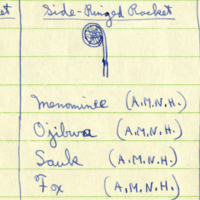 et
Side-Ringed Racket
Menominee (A.M.N.H.)
Ojibwa (A.M.N.H.)
Sauk (A.M.N.H.)
Fox (A.M.N.H.)